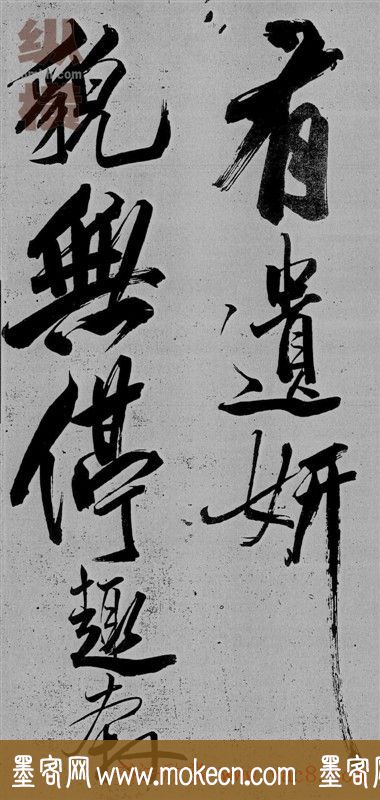 有遺妍
貌無停趣奔
墨客网 www.mokecn.com 墨客网